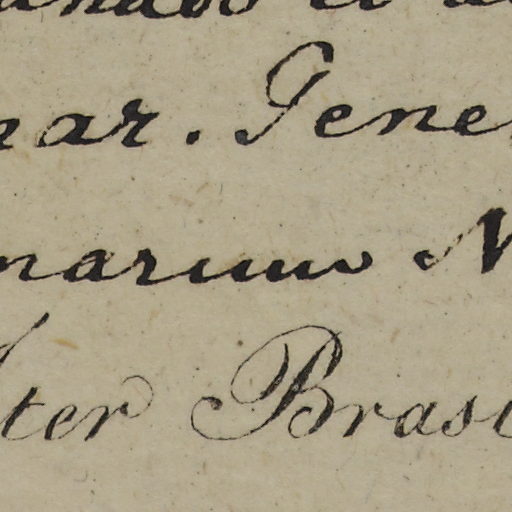 ar. Gene
narum N
ter Bras